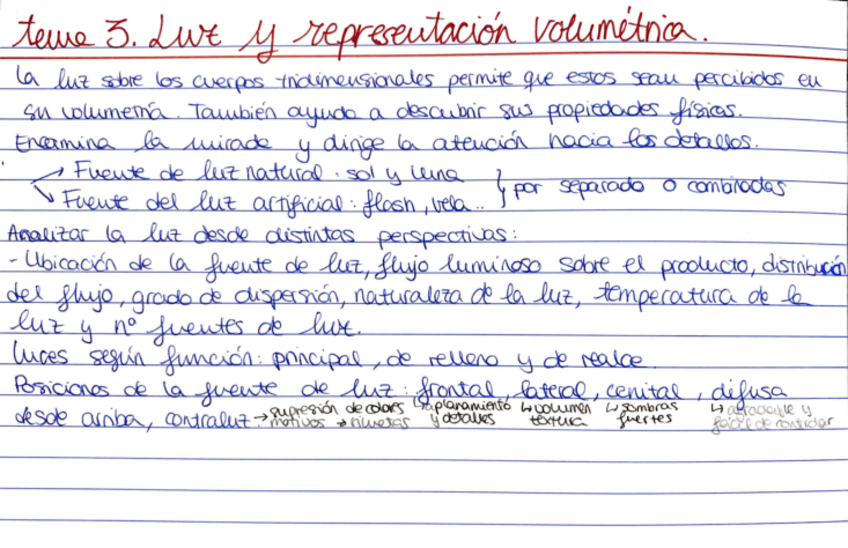 tema 3. Luz y representación volumétrica.
La luz sobre los cuerpos tridimensionales permite que estos sean percibidos en
su volumetría. También ayuda a descubrir sus propiedades físicas.
Encamina la mirada y dirige la atención hacia los detalles.
→ Fuente de luz natural: sol y luna
↘ Fuente del luz artificial: flash, vela.. } por separado o combinadas
Analizar la luz desde distintas perspectivas:
- Ubicación de la fuente de luz, flujo luminoso sobre el producto, distribución
del flujo, grado de dispersión, naturaleza de la luz, temperatura de la
luz y nº fuentes de luz.
Luces según función: principal, de relleno y de realce.
Posiciones de la fuente de luz: frontal, lateral, cenital, difusa
desde arriba, contraluz → supresión de colores ↳ aplanamiento ↳ volumen ↳ sombras ↳ agradable y
motivos → siluetas y detalles textura fuertes fácil de controlar